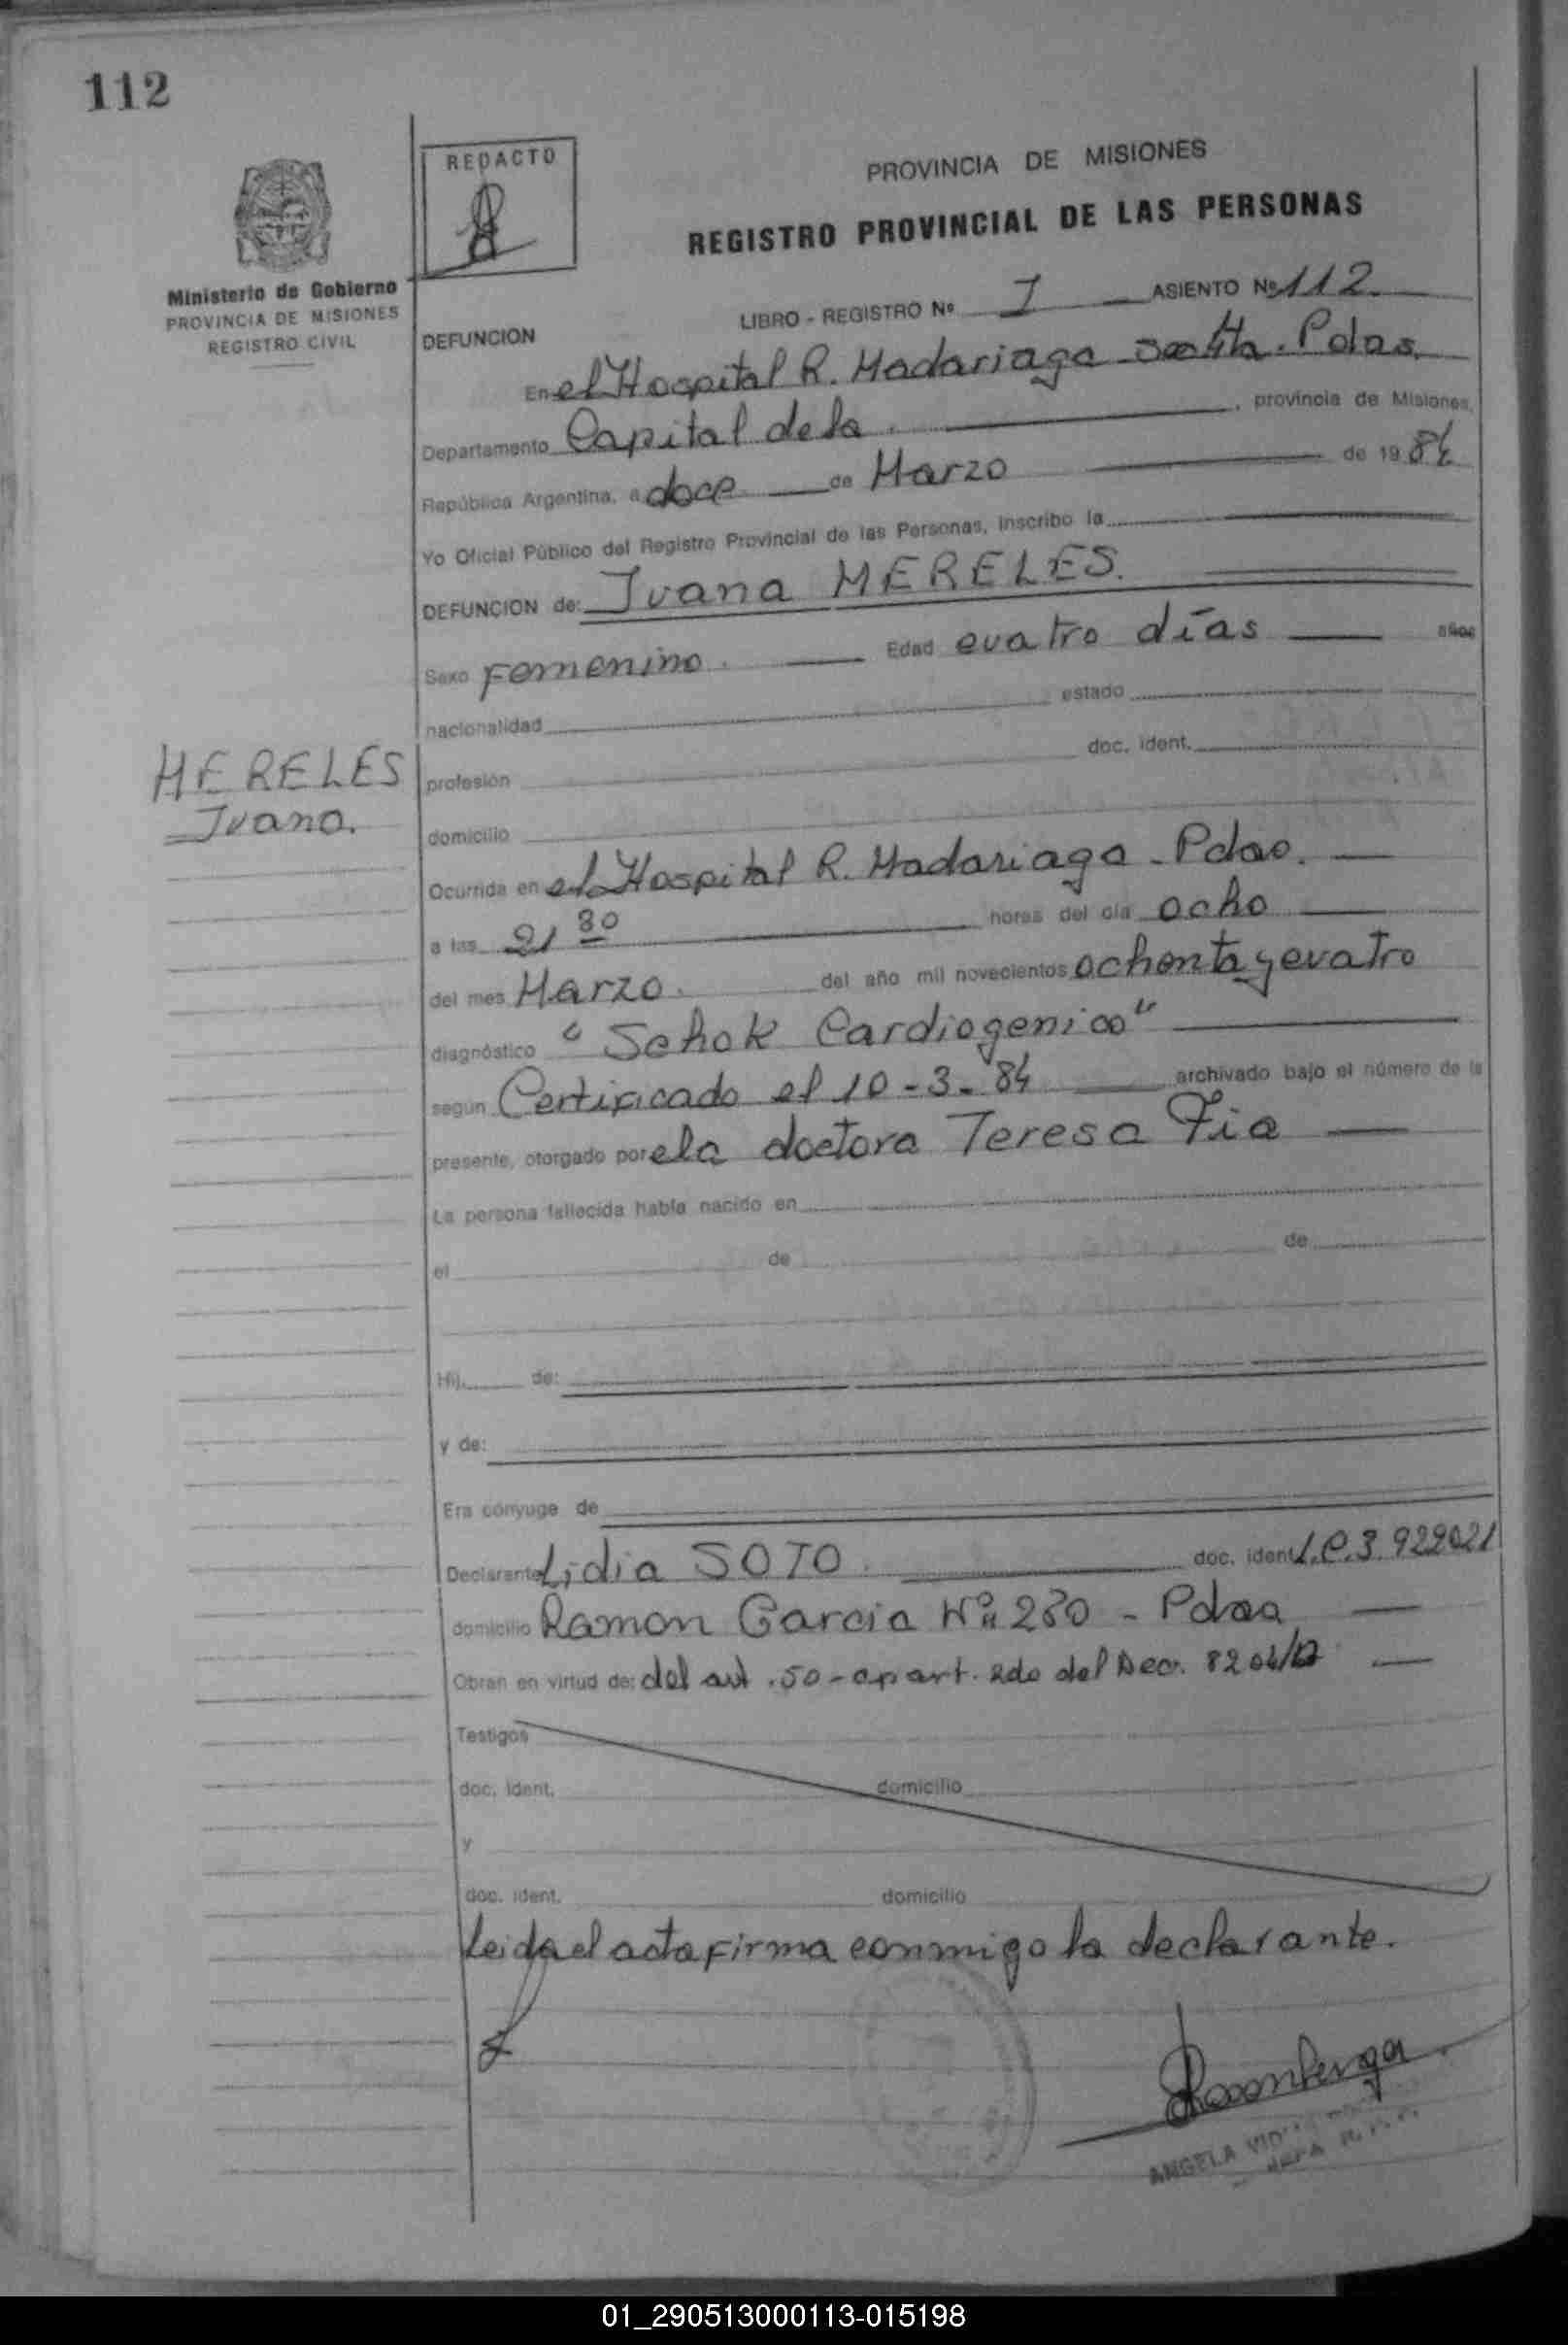 112
REDACTO
PROVINCIA DE MISIONES
REGISTRO PROVINCIAL DE LAS PERSONAS
Ministerio de Gobierno
PROVINCIA DE MISIONES
REGISTRO CIVIL
LIBRO - REGISTRO Nº I ASIENTO Nº 112
DEFUNCION
En el Hospital R. Madariaga Pdas.
Departamento Capital de la , provincia de Misiones,
República Argentina, a doce de Marzo de 1984
Yo Oficial Público del Registro Provincial de las Personas, inscribo la
DEFUNCION de: Juana MERELES.
Sexo Femenino. Edad cuatro días años
nacionalidad estado
doc. ident.
MERELES
Juana.
profesión
domicilio
Ocurrida en el Hospital R. Madariaga - Pdas.
a las 21 30 horas del día ocho
del mes Marzo. del año mil novecientos ochenta y cuatro
diagnóstico "Schok Cardiogenico"
según Certificado el 10-3-84 archivado bajo el número de la
presente, otorgado por la doctora Teresa
La persona fallecida había nacido en
el de de
Hij de:
y de:
Era cónyuge de
Declarante Lidia SOTO. doc. ident. L.C. 3.922021
domicilio Ramon Garcia Nº 280 - Pdas
Obran en virtud de: del art. 50 - apart. 2do del Dec. 8204/
Testigos
doc. ident. domicilio
y
doc. ident. domicilio
Leida el acta firma conmigo la declarante.
ANGELA
JEFA
01_290513000113-015198